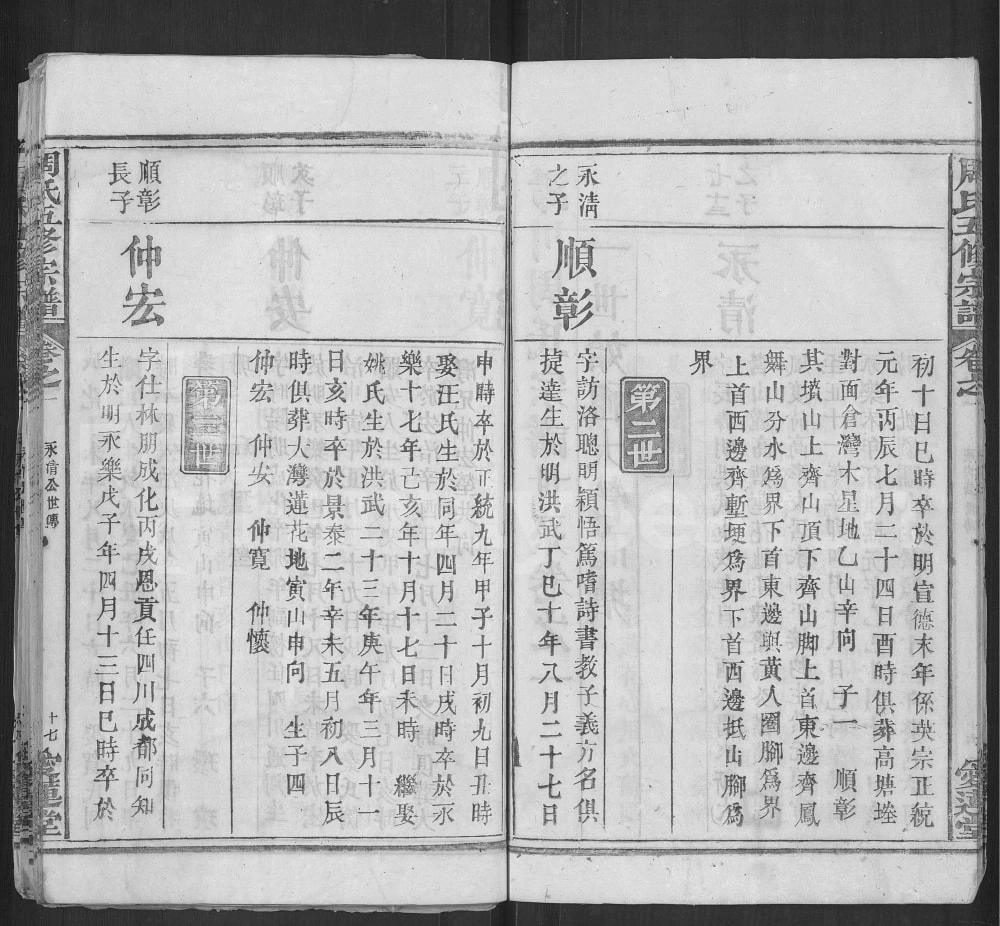 周氏五修宗譜
卷之一
愛蓮堂
初十日巳時卒於明宣德末年係英宗正統
元年丙辰七月二十四日酉時俱葬高塘
對面倉灣木星地乙山辛向 子一 順彰
其墳山上齊山頂下齊山脚上首東邊齊鳳
舞山分水為界下首東邊與黃人圈腳為界
上首西邊齊塹埂為界下首西邊抵山腳為
界
第二世
永淸之子
順彰
字訪洛聰明穎悟篤嗜詩書教子義方名俱
捷達生於明洪武丁巳十年八月二十七日
申時卒於正統九年甲子十月初九日丑時
娶汪氏生於同年四月二十日戌時卒於永
樂十七年己亥年十月十七日未時 繼娶
姚氏生於洪武二十三年庚午年三月十一
日亥時卒於景泰二年辛未五月初八日辰
時俱葬大灣蓮花地寅山申向 生子四
仲宏 仲安 仲寬 仲懷
第三世
順彰長子
仲宏
字仕林朋成化丙戌恩貢任四川成都同知
生於明永樂戊子年四月十三日巳時卒於
周氏五修宗譜
卷之一
永清公世傳
十七
愛蓮堂